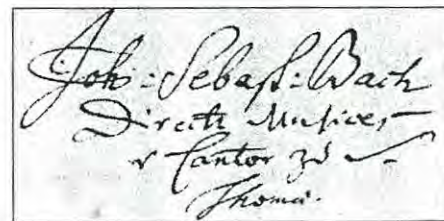 Joh: Sebast: Bach
Direct: Musices
Cantor zu
Thomæ.